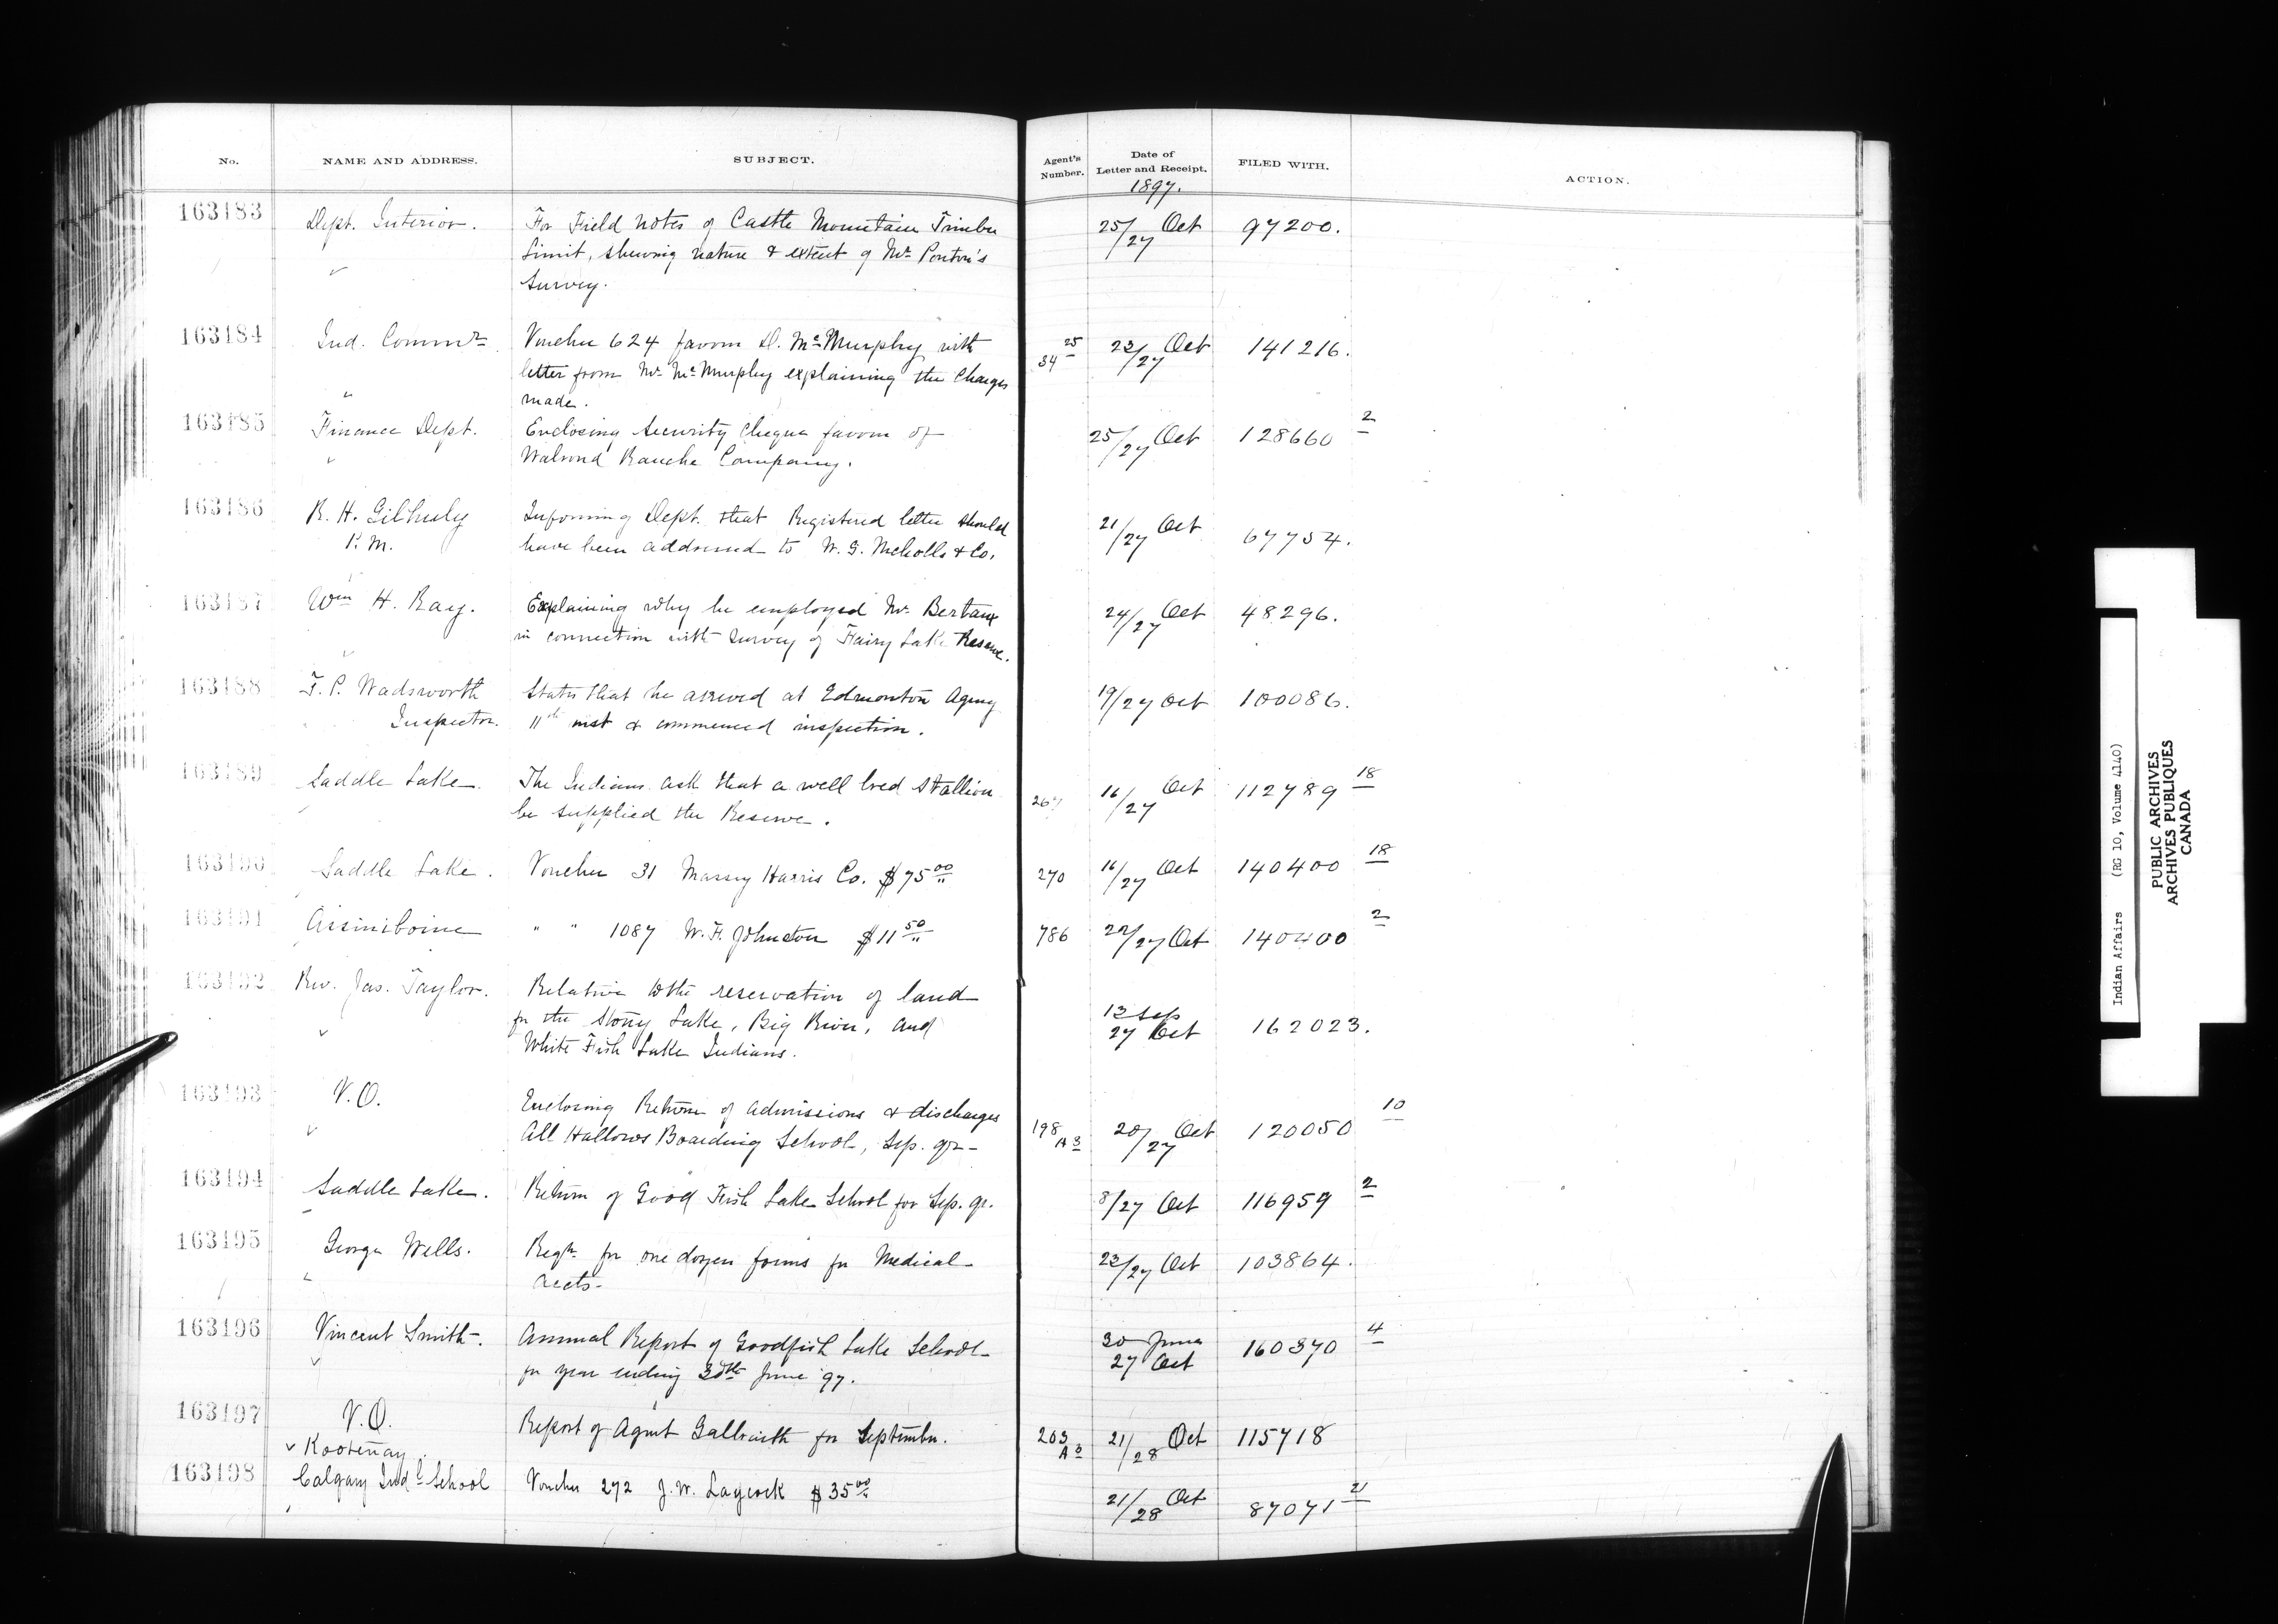 No.
NAME AND ADDRESS.
SUBJECT.
Agent's Number.
Date of Letter and Receipt.
FILED WITH.
ACTION.
1897.
163183
Dept. Interior.
For Field notes of Castle Mountain Timber
Limit, shewing nature & extent of Mr Ponton's
Survey.
25/27 Oct
97200.
163184
Ind. Commr
Voucher 624 favour D. McMurphy with
letter from Mr McMurphy explaining the charges
made.
34 25
23/27 Oct
141216.
163185
Finance Dept.
Enclosing Security Cheque favour of
Walrond Ranche Company.
25/27 Oct
128660 2
163186
R. H.
P. M.
Informing Dept. that Registered letter should
have been addressed to W. G. Nicholls & Co.
21/27 Oct
67754.
163187
Wm H. Ray.
Explaining why he employed Mr
in connection with survey of Fairy Lake Reserve.
24/27 Oct
48296.
163188
T. P. Wadsworth
Inspector.
States that he arrived at Edmonton Agency
11th inst & commenced inspection.
19/27 Oct
100086.
163189
Saddle Lake.
The Indians ask that a well bred Stallion
be supplied the Reserve.
267
16/27 Oct
112789 18
163190
Saddle Lake.
Voucher 31 Massey Harris Co. $75 00
270
16/27 Oct
140400 18
163191
Assiniboine
" " 1087 W. F. Johnston $11 50
786
22/27 Oct
140400 2
163192
Rev. Jas. Taylor.
Relative to the reservation of land
for the Stony Lake, Big River, and
White Fish Lake Indians.
13 Sep
27 Oct
162023.
163193
V. O.
Enclosing Return of admissions & discharges
All Hallows Boarding School, Sep. qr
198 A 3
20/27 Oct
120050 10
163194
Saddle Lake.
Return of Good Fish Lake School for Sep. qr.
8/27 Oct
116959 2
163195
George Wells.
Reqn for one dozen forms for Medical
accts.
23/27 Oct
103864.
163196
Vincent Smith.
Annual Report of Goodfish Lake School
for year ending 30th June '97.
30 June
27 Oct
160370 4
163197
V. O.
Kootenay.
Report of Agent Galbraith for September.
203 A 3
21/28 Oct
115718
163198
Calgary Indl School
Voucher 272 J. W. Laycock $35 00
21/28 Oct
87071 21
Indian Affairs (RG 10, Volume 4140)
PUBLIC ARCHIVES
ARCHIVES PUBLIQUES
CANADA